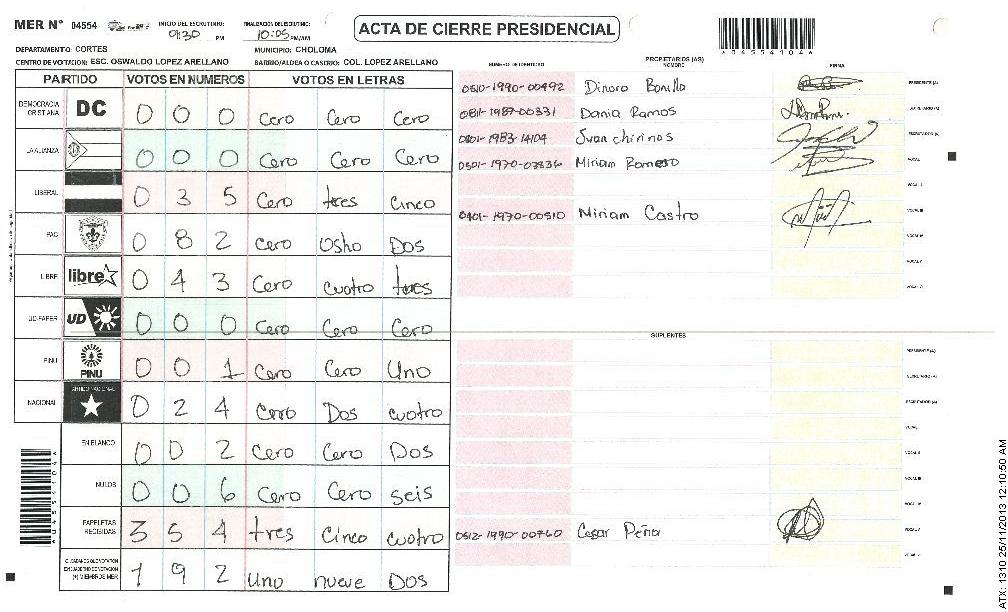 MER N° 04554 INICIO DEL ESCRUTINIO: 09:30 PM FINALIZACION DEL ESCRUTINIO: 10:05 PM/AM ACTA DE CIERRE PRESIDENCIAL
DEPARTAMENTO: CORTES MUNICIPIO: CHOLOMA
CENTRO DE VOTACION: ESC. OSWALDO LOPEZ ARELLANO BARRIO/ALDEA O CASERIO: COL. LOPEZ ARELLANO
PARTIDO VOTOS EN NUMEROS VOTOS EN LETRAS
DEMOCRACIA CRISTIANA DC 0 0 0 Cero Cero Cero
LA ALIANZA 0 0 0 Cero Cero Cero
LIBERAL 0 3 5 Cero tres Cinco
PAC 0 8 2 Cero Osho Dos
LIBRE libre 0 4 3 Cero cuatro tres
UD-FAPER UD 0 0 0 Cero Cero Cero
PINU PINU 0 0 1 Cero Cero Uno
NACIONAL PARTIDO NACIONAL 0 2 4 Cero Dos cuatro
EN BLANCO 0 0 2 Cero Cero Dos
NULOS 0 0 6 Cero Cero seis
PAPELETAS RECIBIDAS 3 5 4 tres Cinco cuatro
1 9 2 Uno nueve Dos
(+) MIEMBROS MER
A04554104A
NUMERO DE IDENTIDAD PROPIETARIOS (AS) NOMBRE FIRMA
0510-1990-00492 Dinora Bonilla PRESIDENTE (A)
0811-1989-00331 Dania Ramos SECRETARIO (A)
0801-1983-14104 Juan chirinos ESCRUTADOR (A)
0501-1970-03336 Miriam Romero VOCAL I
VOCAL II
0401-1970-00510 Miriam Castro VOCAL III
VOCAL IV
VOCAL V
SUPLENTES
PRESIDENTE (A)
SECRETARIO (A)
ESCRUTADOR (A)
VOCAL I
VOCAL II
VOCAL III
VOCAL IV
0512-1990-00760 Cesar Peña VOCAL V
ATX: 1310 25/11/2013 12:10:50 AM